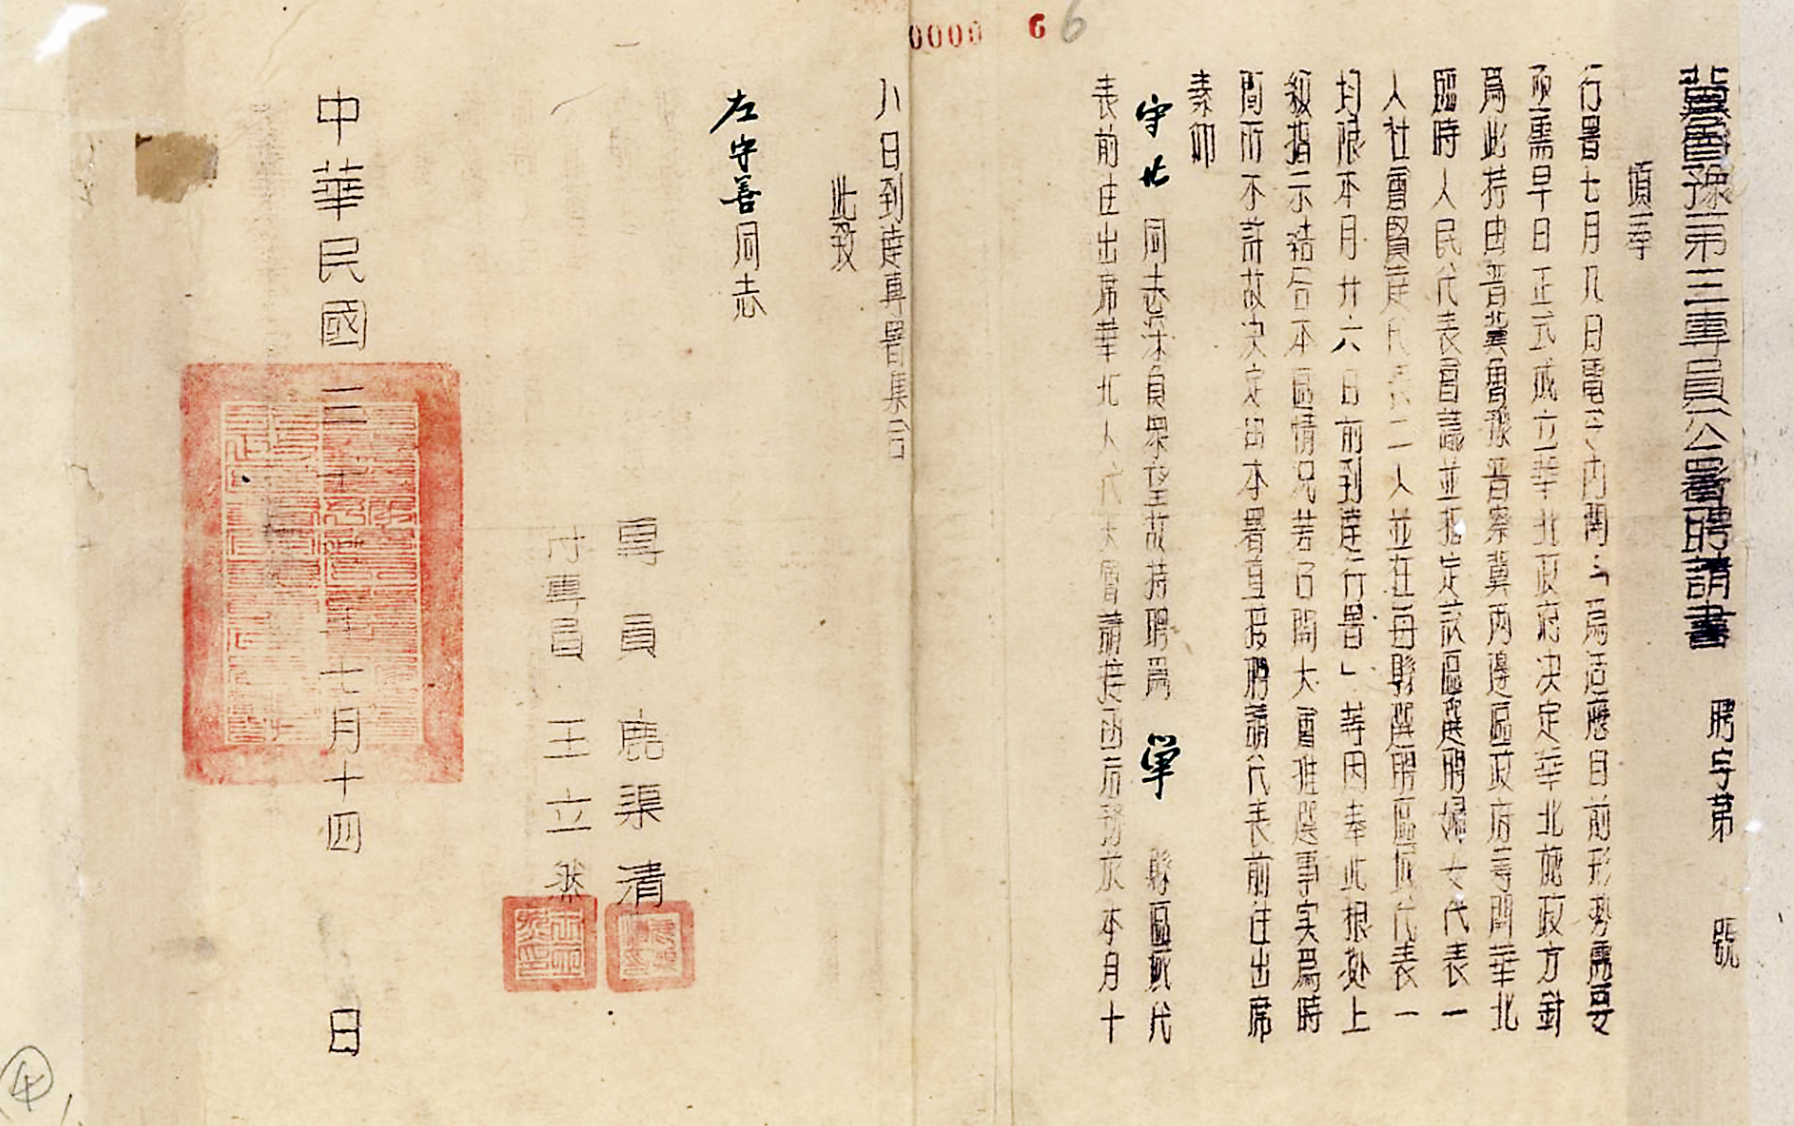 0000 6 6
冀魯豫第三專員公署聘請書 聘字第 號
頃奉
行署七月八日電令內開：「為适應目前形势需要
亟需早日正式成立華北政府决定華北施政方針
為此持由晋冀魯豫晋察冀两邊區政府等開華北
臨時人民代表會議並指定該區選聘婦女代表一
人社會賢達代表二人並在每縣選聘區域代表一
均限本月廿六日前到達行署」等因奉此根处上
級指示結合本區情况若召開大會推選事实為時
間所不許故决定由本署直接聘請代表前往出席
素仰
守北 同志深負眾望故持聘為 單 縣區域代
表前往出席華北人代大會請接函后務於本月十
八日到達專署集合
此致
左守善同志
專員 鹿渠清
付專員 王立然
中華民國三十七年七月十四 日
4